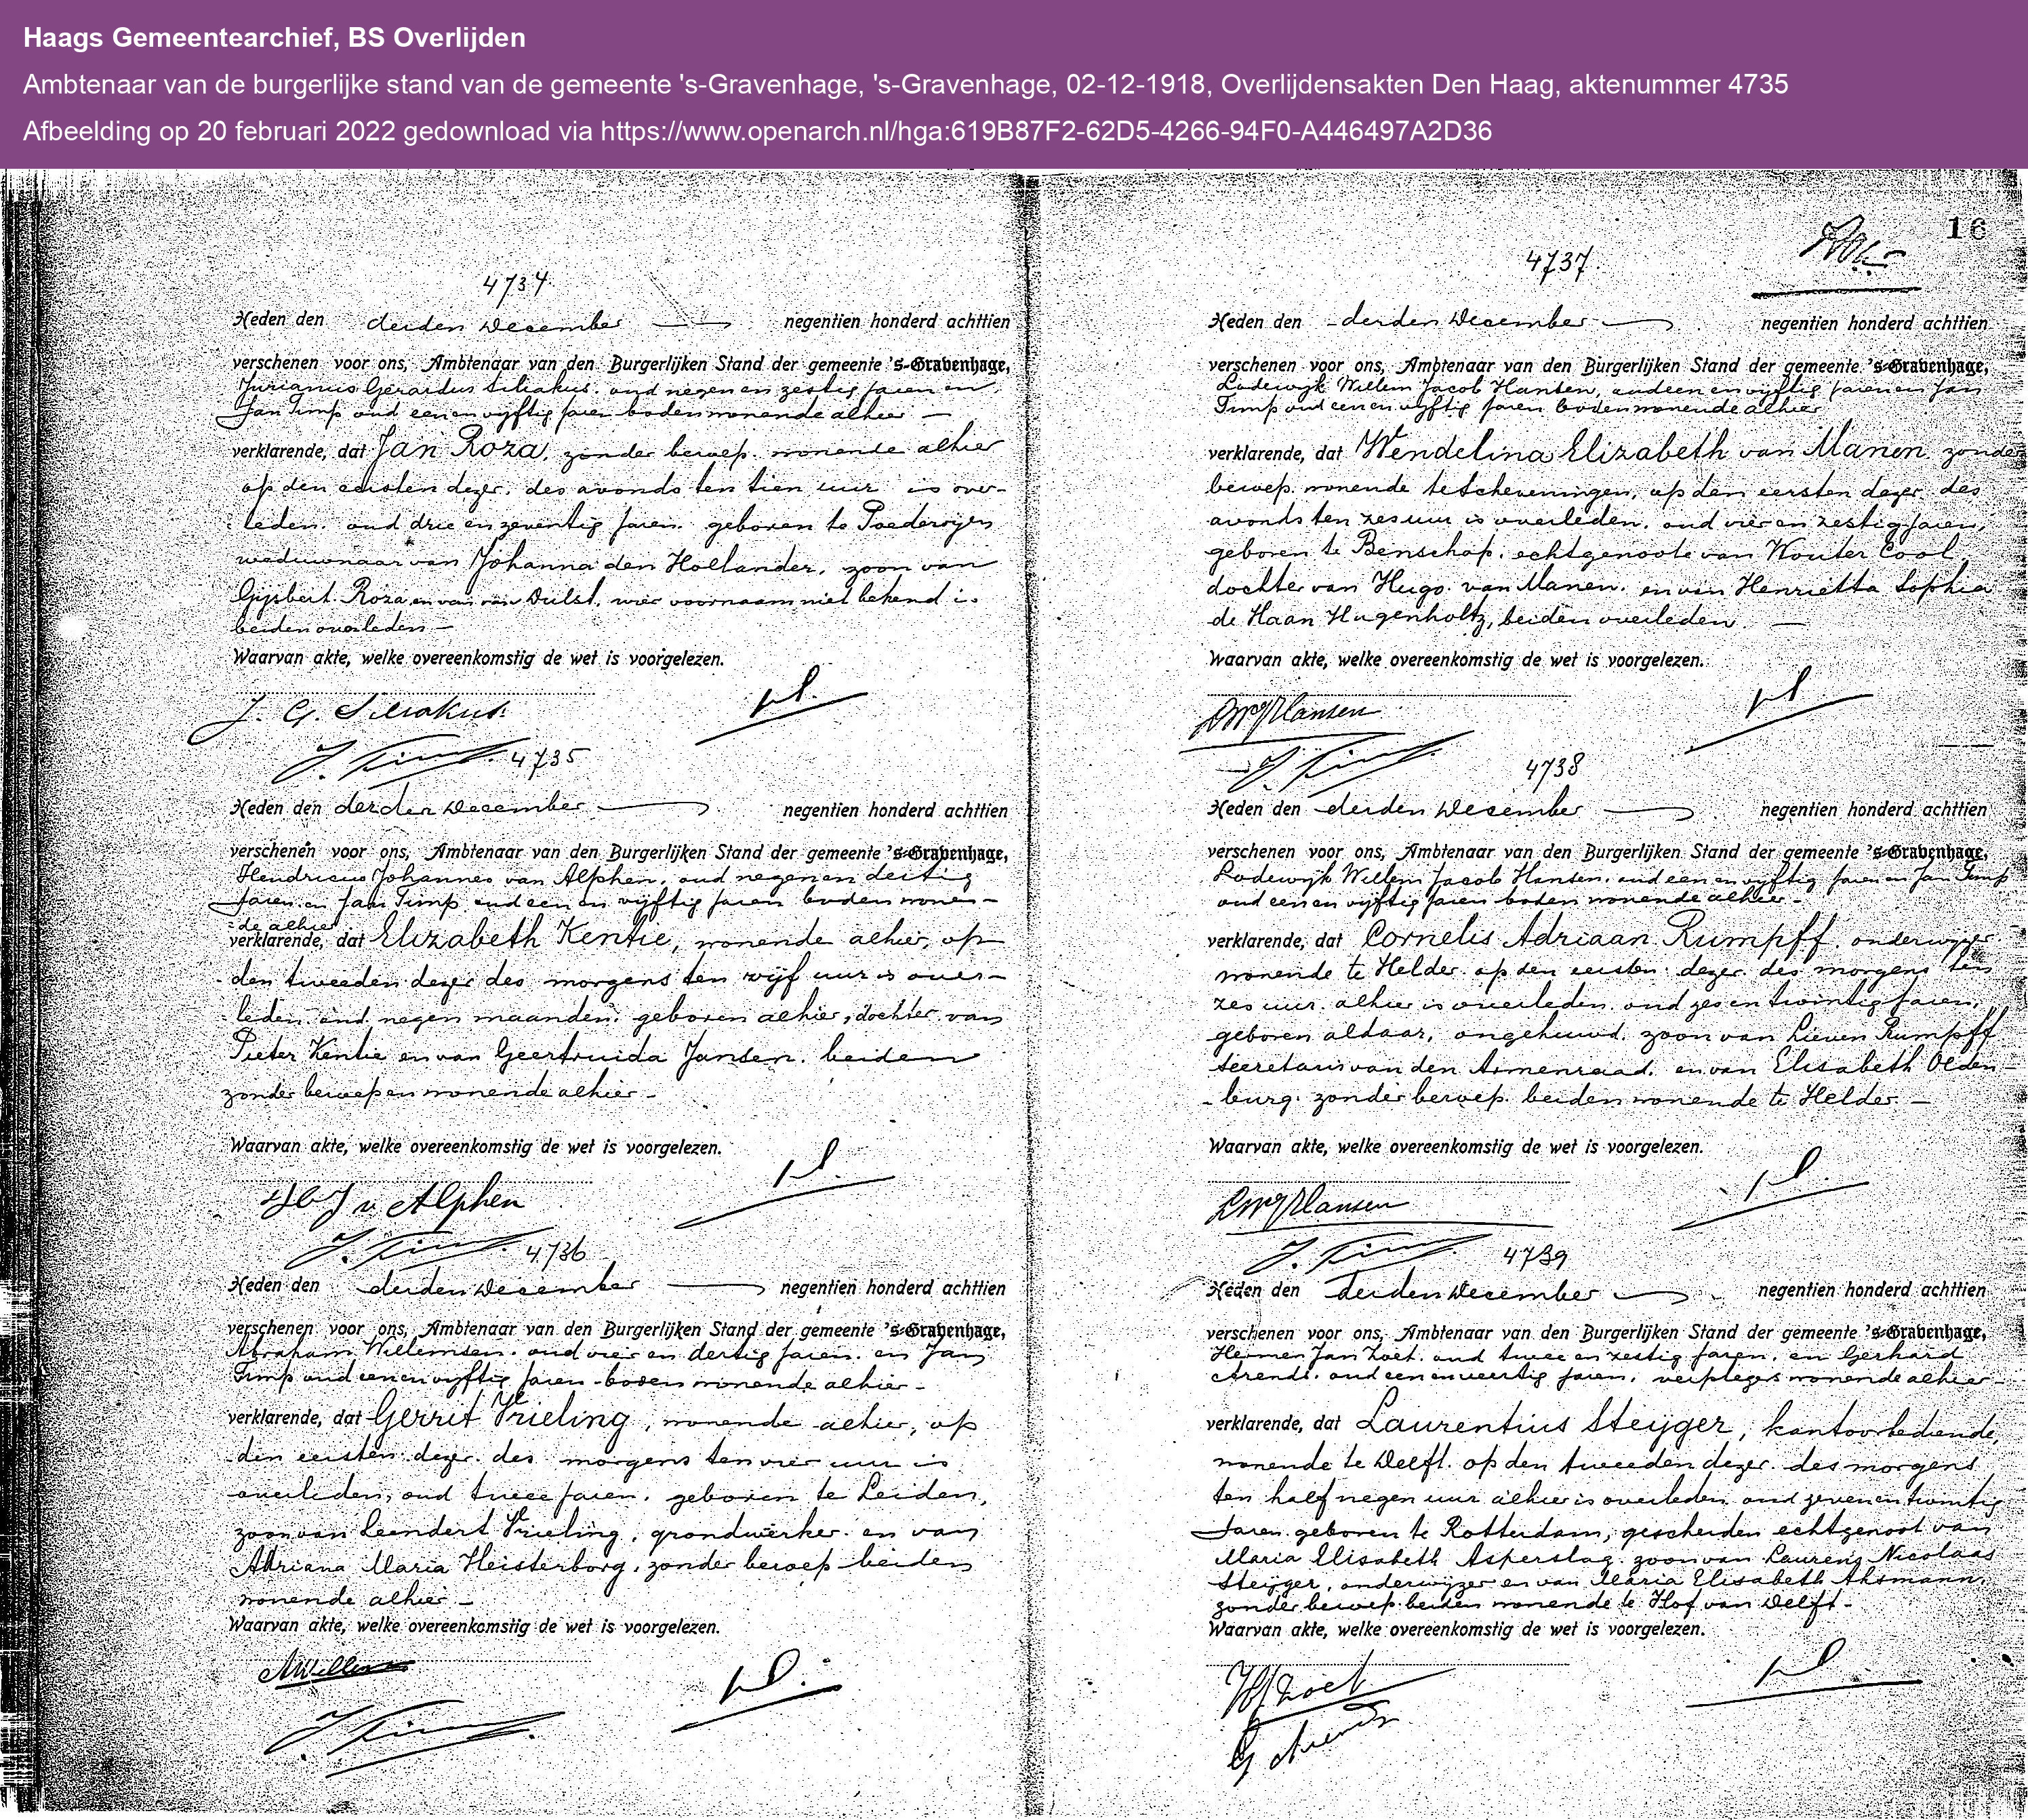 Haags Gemeentearchief, BS Overlijden
Ambtenaar van de burgerlijke stand van de gemeente 's-Gravenhage, 's-Gravenhage, 02-12-1918, Overlijdensakten Den Haag, aktenummer 4735
Afbeelding op 20 februari 2022 gedownload via https://www.openarch.nl/hga:619B87F2-62D5-4266-94F0-A446497A2D36
4734
Heden den derden December negentien honderd achttien
verschenen voor ons, Ambtenaar van den Burgerlijken Stand der gemeente 's-Gravenhage,
Jurianus Gerardus Siliakus, oud negen en zestig jaren en
Jan Timp oud een en vijftig jaren boden wonende alhier —
verklarende, dat Jan Roza, zonder beroep, wonende alhier
op den eersten dezer, des avonds ten tien uur is over-
leden, oud drie en zeventig jaren, geboren te Poederoijen
weduwnaar van Johanna den Hollander, zoon van
Gijsbert Roza en van van Dulst, wier voornaam niet bekend is
beiden overleden —
Waarvan akte, welke overeenkomstig de wet is voorgelezen.
J. G. Siliakus
J. Timp
4735
Heden den derden December negentien honderd achttien
verschenen voor ons, Ambtenaar van den Burgerlijken Stand der gemeente 's-Gravenhage,
Hendricus Johannes van Alphen, oud negen en dertig
jaren en Jan Timp oud een en vijftig jaren boden wonen-
de alhier
verklarende, dat Elizabeth Kentie, wonende alhier, op
den tweeden dezer des morgens ten vijf uur is over-
leden, oud negen maanden, geboren alhier, dochter van
Pieter Kentie en van Geertruida Jansen, beiden
zonder beroep en wonende alhier -
Waarvan akte, welke overeenkomstig de wet is voorgelezen.
HJ v Alphen
J. Timp
4736
Heden den derden December negentien honderd achttien
verschenen voor ons, Ambtenaar van den Burgerlijken Stand der gemeente 's-Gravenhage,
Abraham Willemsen, oud vier en dertig jaren, en Jan
Timp oud een en vijftig jaren boden wonende alhier -
verklarende, dat Gerrit Vrieling, wonende alhier, op
den eersten dezer des morgens ten vier uur is
overleden, oud twee jaren, geboren te Leiden,
zoon van Leendert Vrieling, grondwerker en van
Adriana Maria Heisterborg, zonder beroep beiden
wonende alhier -
Waarvan akte, welke overeenkomstig de wet is voorgelezen.
AWillemsen
J. Timp
16
4737.
Heden den derden December negentien honderd achttien
verschenen voor ons, Ambtenaar van den Burgerlijken Stand der gemeente 's-Gravenhage,
Lodewijk Willem Jacob Hansen, oud een en vijftig jaren en Jan
Timp oud een en vijftig jaren boden wonende alhier
verklarende, dat Wendelina Elizabeth van Manen, zonder
beroep, wonende te Scheveningen, op den eersten dezer des
avonds ten zes uur is overleden, oud vier en zestig jaren,
geboren te Benschop, echtgenoote van Wouter Cool,
dochter van Hugo van Manen, en van Henrietta Sophia
de Haan Hugenholtz, beiden overleden. —
Waarvan akte, welke overeenkomstig de wet is voorgelezen.
LWJHansen
J. Timp
4738
Heden den derden December negentien honderd achttien
verschenen voor ons, Ambtenaar van den Burgerlijken Stand der gemeente 's-Gravenhage,
Lodewijk Willem Jacob Hansen, oud een en vijftig jaren en Jan Timp
oud een en vijftig jaren boden wonende alhier -
verklarende, dat Cornelis Adriaan Rumpff, onderwijzer
wonende te Helder op den eersten dezer des morgens ten
zes uur alhier is overleden, oud zes en twintig jaren,
geboren aldaar, ongehuwd, zoon van Lieven Rumpff
secretaris van den Armenraad, en van Elisabeth Olden-
burg, zonder beroep, beiden wonende te Helder —
Waarvan akte, welke overeenkomstig de wet is voorgelezen.
LWJHansen
J. Timp
4739
Heden den derden December negentien honderd achttien
verschenen voor ons, Ambtenaar van den Burgerlijken Stand der gemeente 's-Gravenhage,
Hermen Jan Zoet, oud twee en zestig jaren, en Gerhard
Arends, oud een en veertig jaren, verplegers wonende alhier -
verklarende, dat Laurentius Steyger, kantoorbediende,
wonende te Delft, op den tweeden dezer des morgens
ten half negen uur alhier is overleden, oud zeven en twintig
jaren, geboren te Rotterdam, gescheiden echtgenoot van
Maria Elisabeth Asperslag, zoon van Laurens Nicolaas
Steijger, onderwijzer en van Maria Elisabeth Ahsmann,
zonder beroep beiden wonende te Hof van Delft -
Waarvan akte, welke overeenkomstig de wet is voorgelezen.
HJ Zoet
G Arends